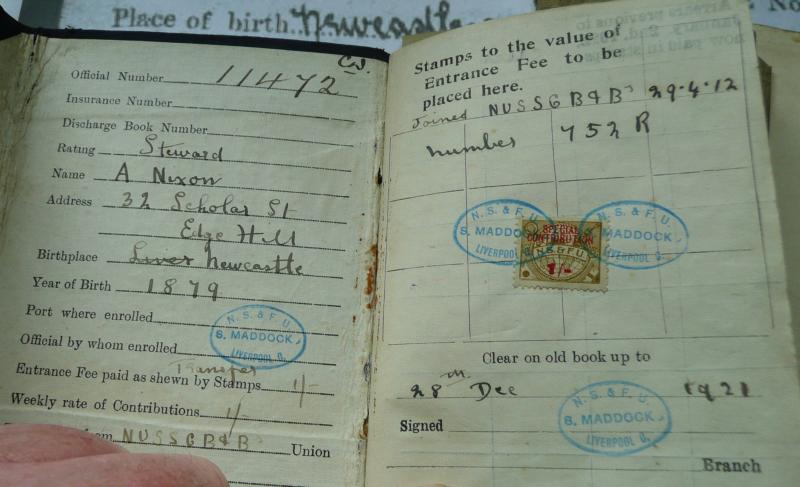 Place of birth Newcastle
Official Number 11472
Insurance Number
Discharge Book Number
Rating Steward
Name A Nixon
Address 32 Scholar St
Edge Hill
Birthplace Liver Newcastle
Year of Birth 1879
Port where enrolled
Official by whom enrolled
N.S. & F.U.
S. MADDOCK
LIVERPOOL
Transfer
Entrance Fee paid as shewn by Stamps 1/-
Weekly rate of Contributions 1/-
NUSSGB&B Union
Stamps to the value of
Entrance Fee to be
placed here.
Joined NUSSGB&B 29.4.12
number 752 R
N.S. & F.U.
S. MADDOCK
LIVERPOOL
SPECIAL
CONTRIBUTION
1/-
N.S. & F.U.
MADDOCK
LIVERPOOL
Clear on old book up to
28th Dec 1921
Signed
N.S. & F.U.
S. MADDOCK
LIVERPOOL
Branch